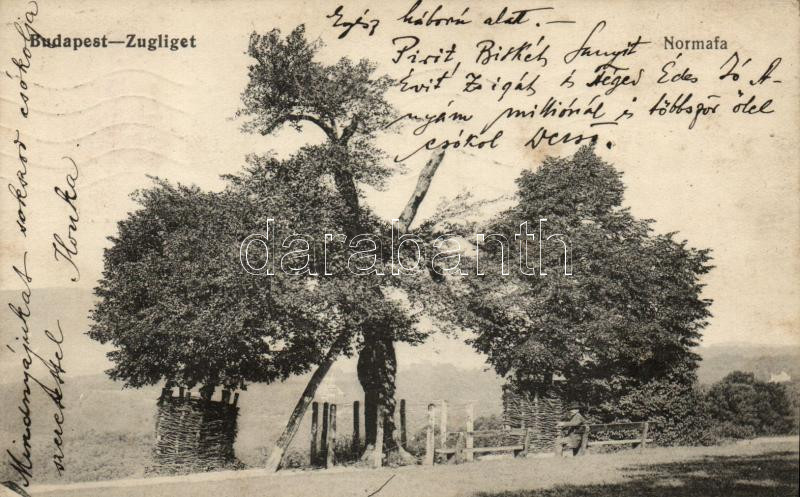 Budapest—Zugliget
Normafa
Egész háború alatt.—
Pirit, Biskét, Sanyit
Évit, Zsigát és Téged Édes Jó A-
nyám milliónál is többször ölel
csókol Dezső
Mindnyájukat sokszor csókolja
szeretettel Ilonka
darabanth